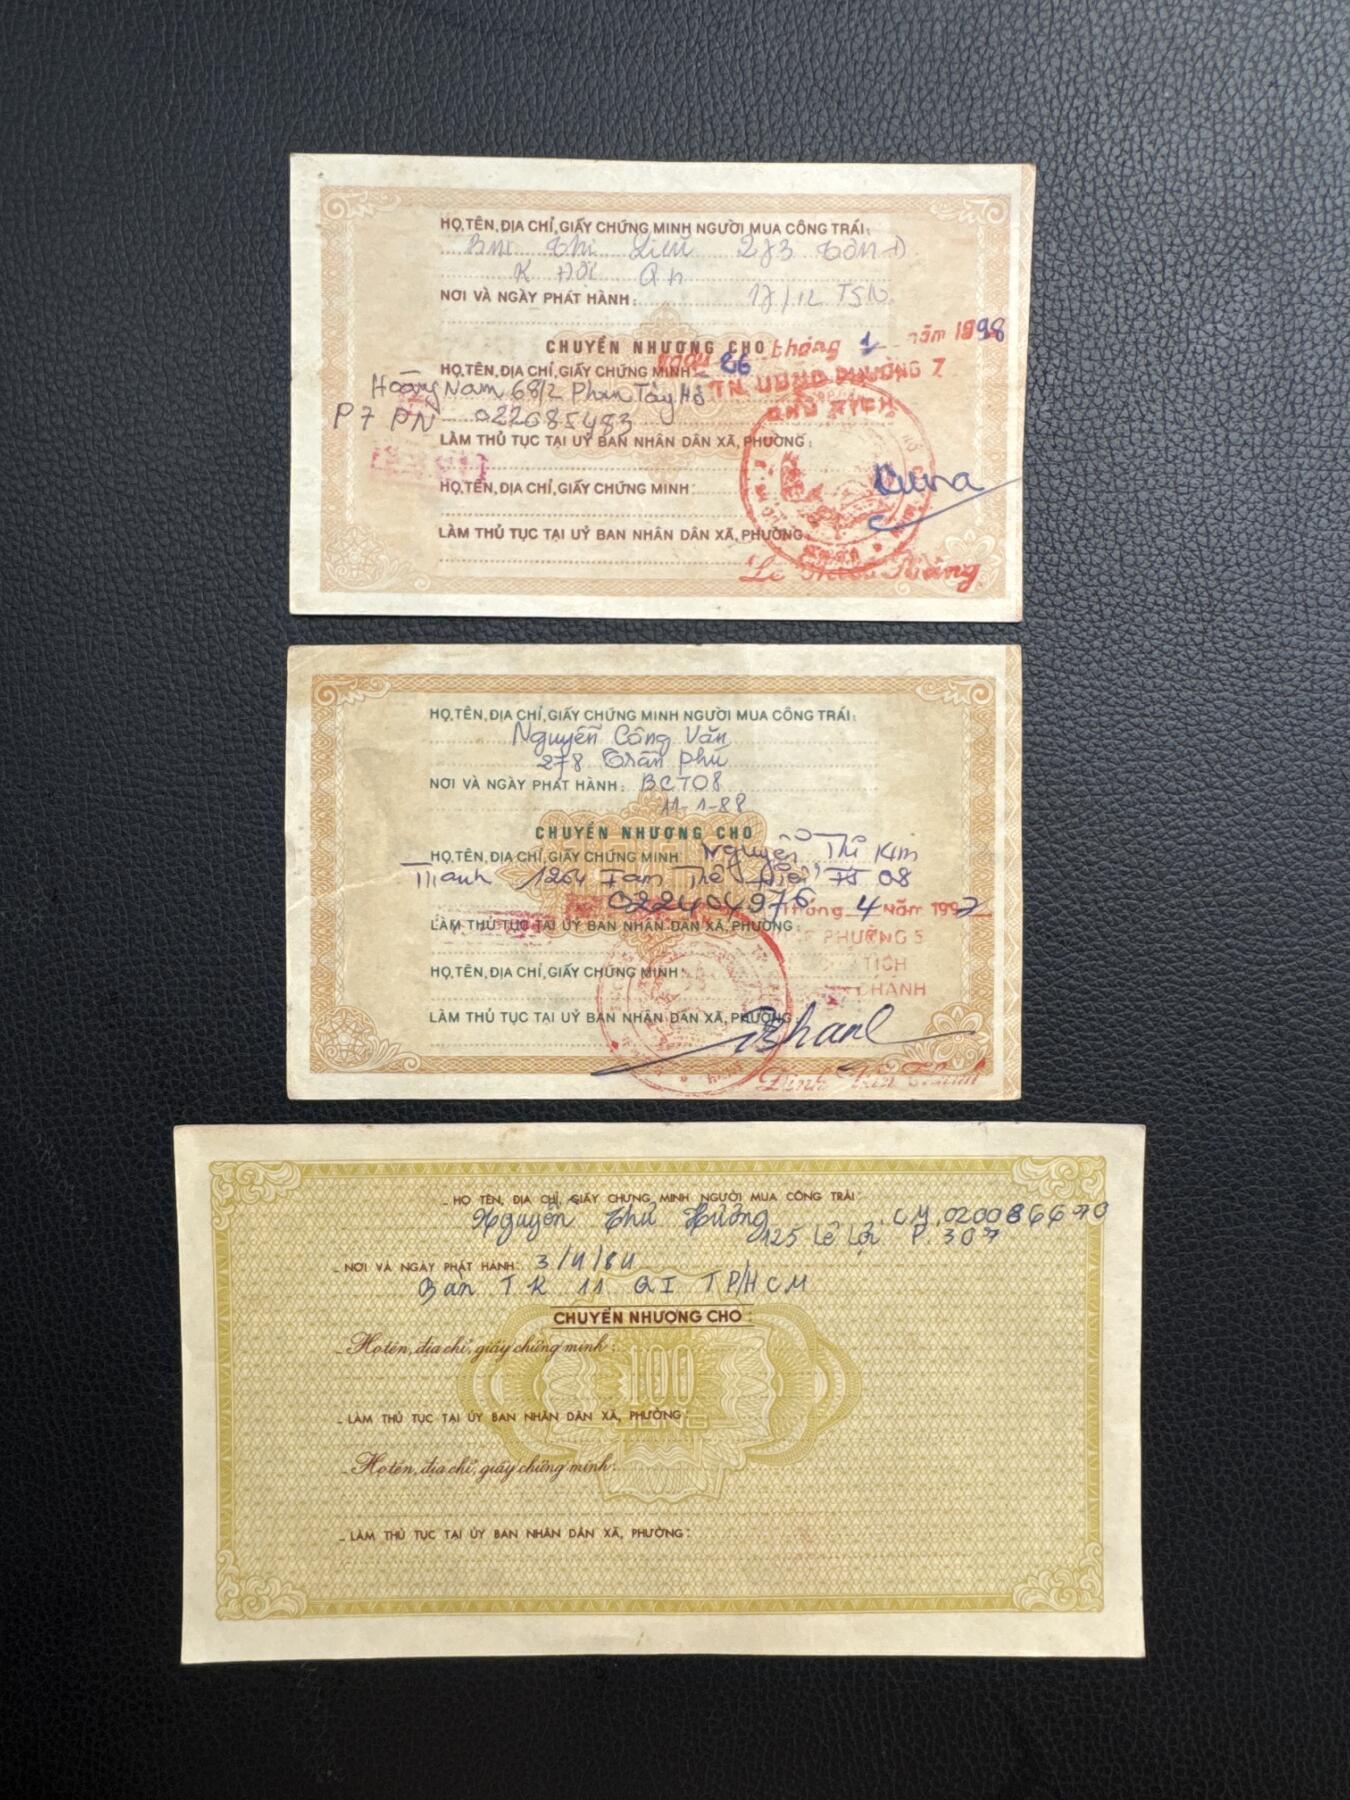 HỌ, TÊN, ĐỊA CHỈ, GIẤY CHỨNG MINH NGƯỜI MUA CÔNG TRÁI:
Thị Liên 273
K Đội Qn
NƠI VÀ NGÀY PHÁT HÀNH: 17/12 TSN
CHUYỂN NHƯỢNG CHO
ngày 26 tháng 1 năm 1998
HỌ, TÊN, ĐỊA CHỈ, GIẤY CHỨNG MINH:
TN. UBND PHƯỜNG 7
Hoàng Nam 68/2 Phan Tây Hồ
CHỦ TỊCH
P7 PN 022685483
LÀM THỦ TỤC TẠI UỶ BAN NHÂN DÂN XÃ, PHƯỜNG:
HỌ, TÊN, ĐỊA CHỈ, GIẤY CHỨNG MINH:
LÀM THỦ TỤC TẠI UỶ BAN NHÂN DÂN XÃ, PHƯỜNG:
Lê
HỌ, TÊN, ĐỊA CHỈ, GIẤY CHỨNG MINH NGƯỜI MUA CÔNG TRÁI:
Nguyễn Công Văn
278 Trần Phú
NƠI VÀ NGÀY PHÁT HÀNH: BCT08
11-1-88
CHUYỂN NHƯỢNG CHO
HỌ, TÊN, ĐỊA CHỈ, GIẤY CHỨNG MINH Nguyễn Thị Kim
Thanh 1264 08
022404976 tháng 4 năm 1997
LÀM THỦ TỤC TẠI UỶ BAN NHÂN DÂN XÃ, PHƯỜNG:
PHƯỜNG 5
HỌ, TÊN, ĐỊA CHỈ, GIẤY CHỨNG MINH:
TỊCH
CHÁNH
LÀM THỦ TỤC TẠI UỶ BAN NHÂN DÂN XÃ, PHƯỜNG
Đinh
- HỌ TÊN, ĐỊA CHỈ, GIẤY CHỨNG MINH NGƯỜI MUA CÔNG TRÁI:
Nguyễn Thu Hương CM.020086670
125 Lê Lợi P. 307
- NƠI VÀ NGÀY PHÁT HÀNH: 3/4/84
Ban TR 11 QI TP/HCM
CHUYỂN NHƯỢNG CHO:
- Họ tên, địa chỉ, giấy chứng minh:
100
- LÀM THỦ TỤC TẠI ỦY BAN NHÂN DÂN XÃ, PHƯỜNG:
ĐỒNG
- Họ tên, địa chỉ, giấy chứng minh:
- LÀM THỦ TỤC TẠI ỦY BAN NHÂN DÂN XÃ, PHƯỜNG: